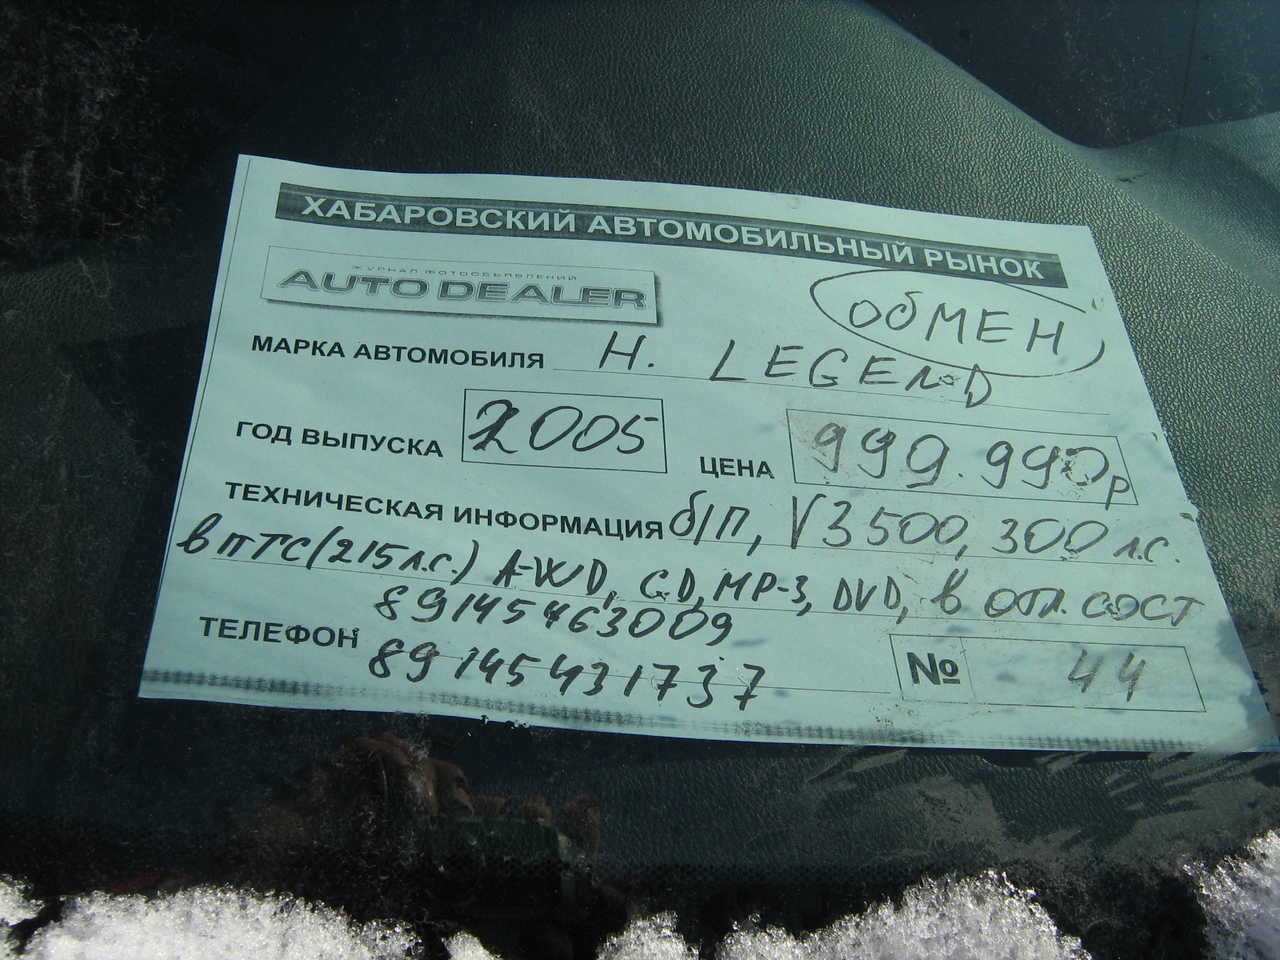 ХАБАРОВСКИЙ АВТОМОБИЛЬНЫЙ РЫНОК
ЖУРНАЛ ФОТООБЪЯВЛЕНИЙ
AUTO DEALER
ОБМЕН
МАРКА АВТОМОБИЛЯ H. LEGEND
ГОД ВЫПУСКА 2005 ЦЕНА 999.990р
ТЕХНИЧЕСКАЯ ИНФОРМАЦИЯ б/п, V3500, 300 л.с.
в ПТС (215 л.с.) A-WD, CD, MP-3, DVD, в отл. сост
89145463009
ТЕЛЕФОН 89145431737
№ 44